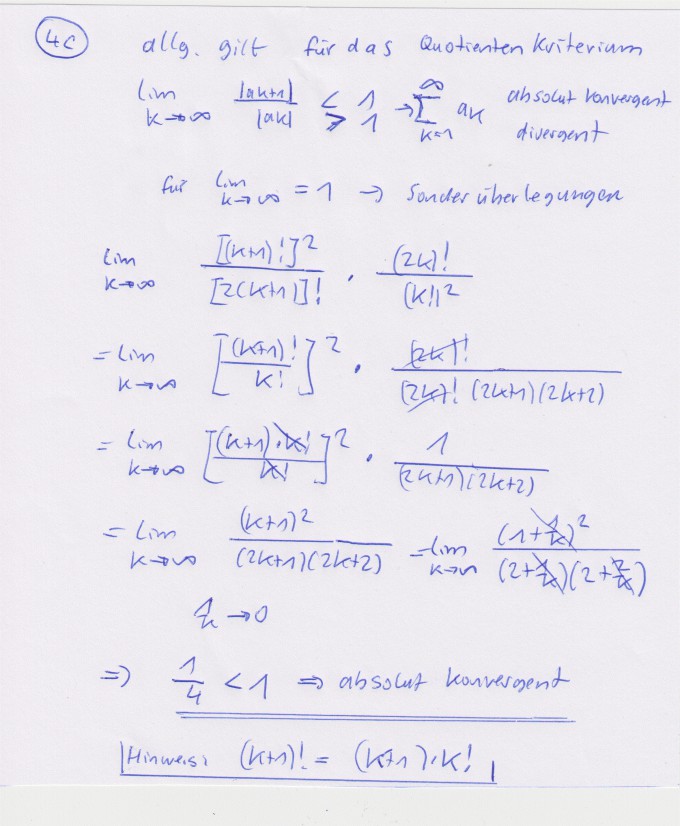 4c allg. gilt für das Quotienten Kriterium
lim k→∞ |ak+1| / |ak| < 1 > 1 → ∞ Σ k=1 ak absolut konvergent divergent
für lim k→∞ = 1 → Sonderüberlegungen
lim k→∞ [(k+1)!]² / [2(k+1)]! · (2k)! / (k!)²
= lim k→∞ [(k+1)! / k!]² · (2k)! / (2k)! (2k+1)(2k+2)
= lim k→∞ [(k+1)·k! / k!]² · 1 / (2k+1)(2k+2)
= lim k→∞ (k+1)² / (2k+1)(2k+2) = lim k→∞ (1+1/k)² / (2+1/k)(2+2/k)
1/k → 0
⇒ 1/4 < 1 ⇒ absolut konvergent
Hinweis: (k+1)! = (k+1)·k!